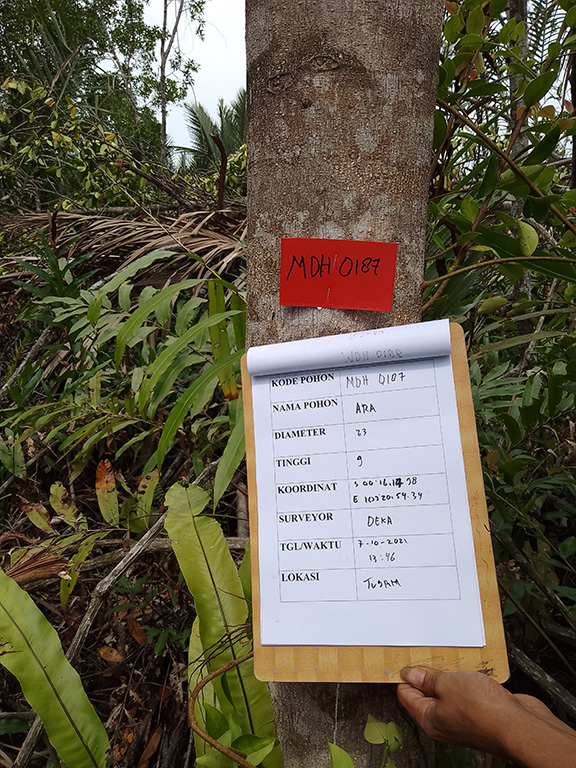 MDH 0187
KODE POHON MDH 0187
NAMA POHON ARA
DIAMETER 23
TINGGI 9
KOORDINAT S 00.16.17 98
E 10320.54.34
SURVEYOR DEKA
TGL/WAKTU 7-10-2021
13:46
LOKASI TUJAM